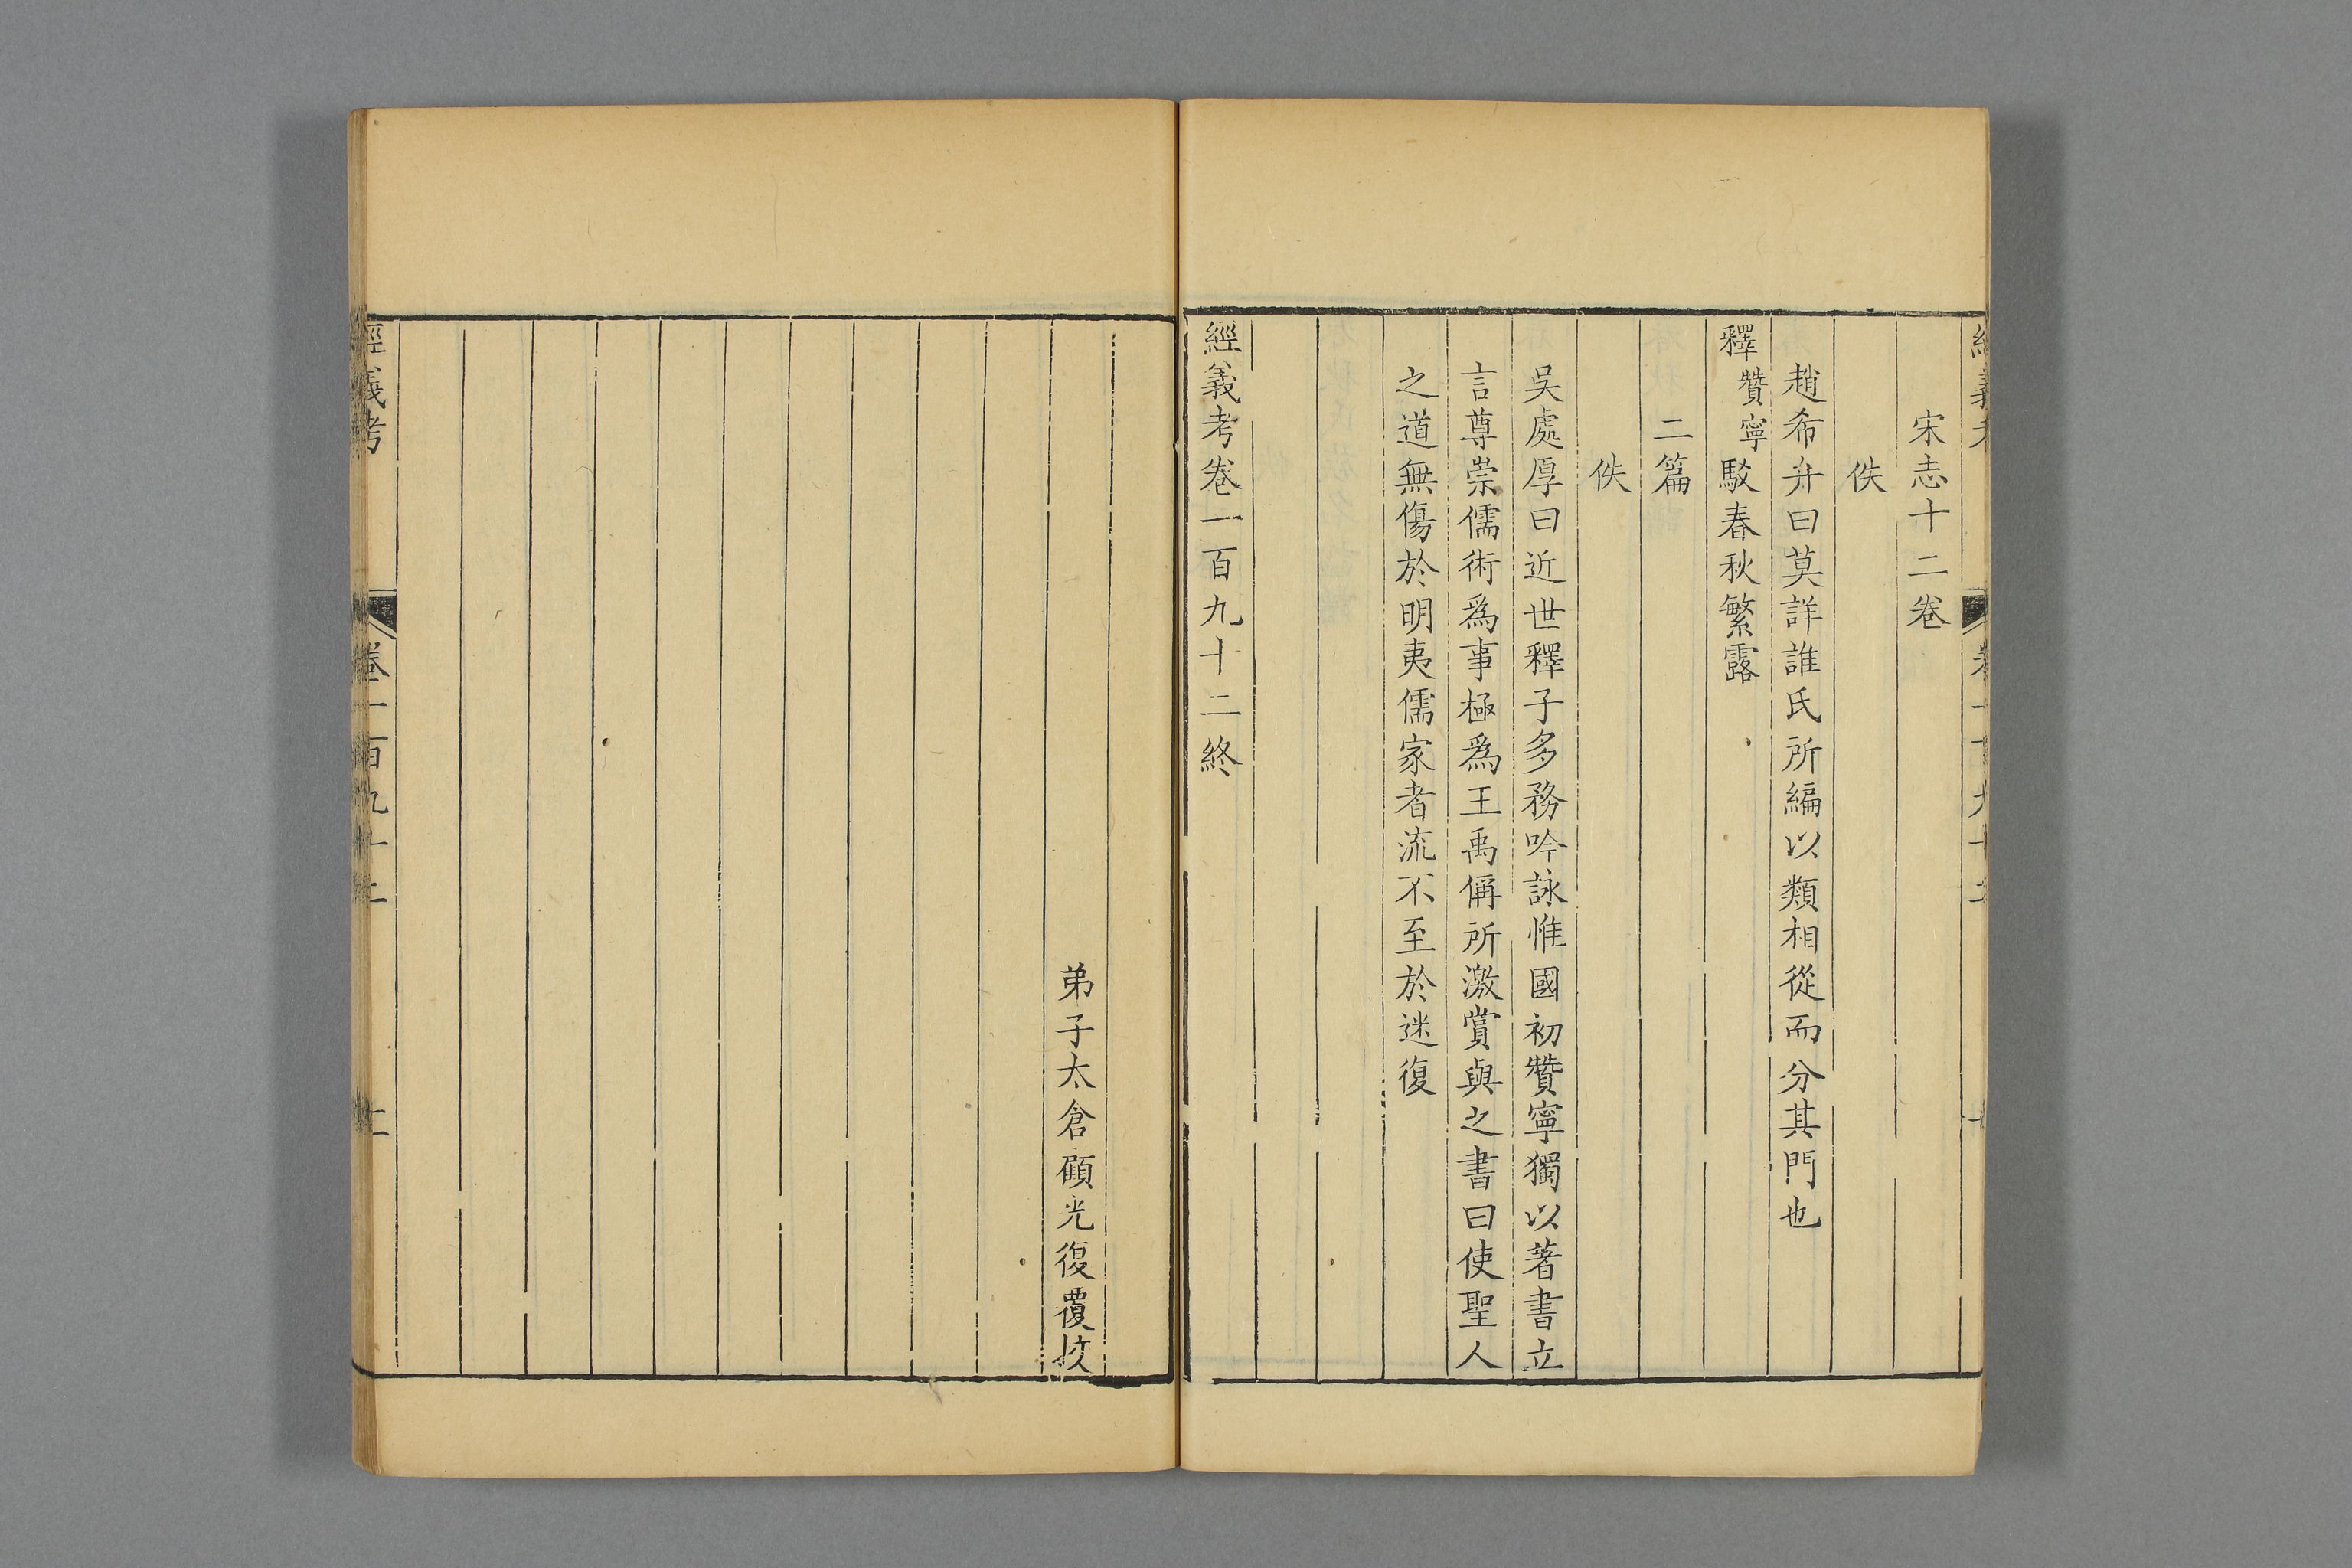 宋志十二卷
佚
趙希弁曰莫詳誰氏所編以類相從而分其門也
釋贊寧駁春秋繁露
二篇
佚
吳處厚曰近世釋子多務吟詠惟國初贊寧獨以著書立
言尊崇儒術爲事極爲王禹偁所激賞與之書曰使聖人
之道無傷於明夷儒家者流不至於迷復
經義考卷一百九十二終
弟子太倉顧光復覆挍
經義考 卷一百九十二